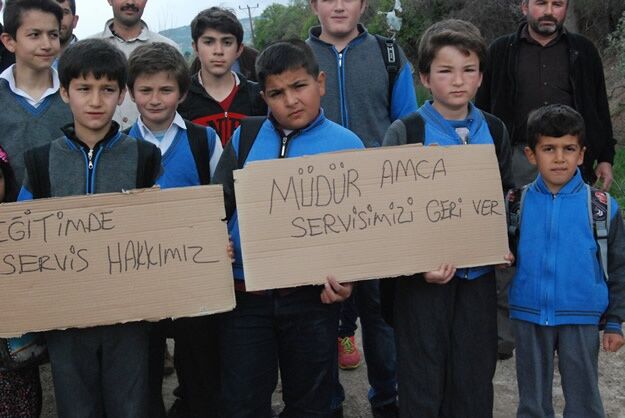 EĞİTİMDE
SERVİS HAKKIMIZ
MÜDÜR AMCA
SERVİSİMİZİ GERİ VER